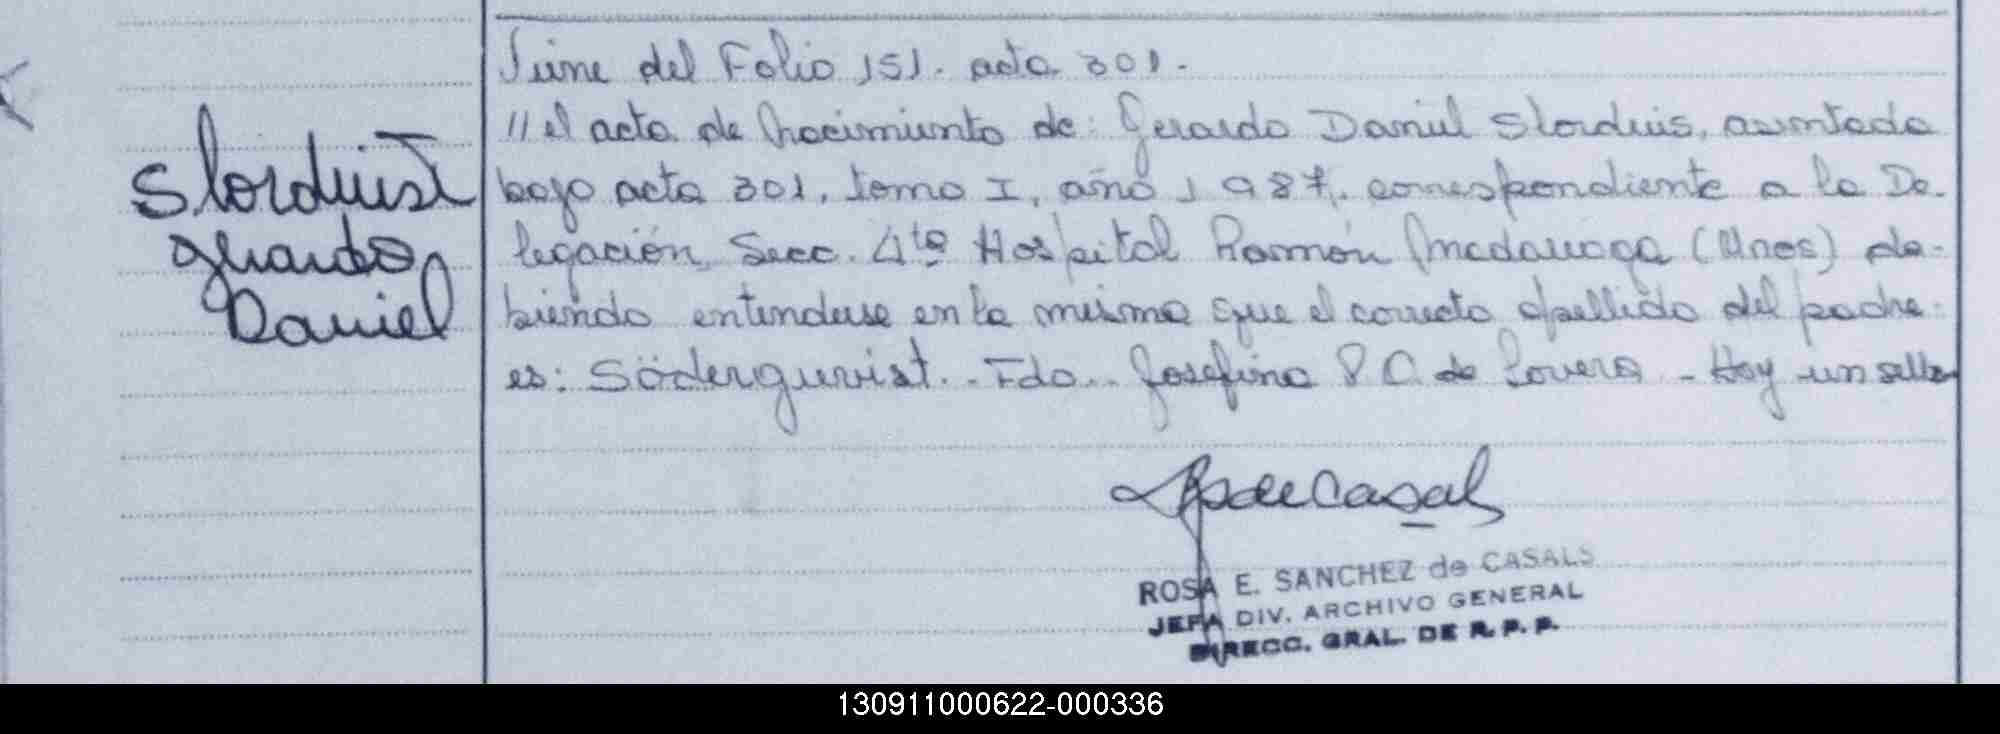 Viene del Folio 151. acta 301.-
Slorduist
Gerardo
Daniel
// el acta de Nacimiento de: Gerardo Daniel Slorduis, asentada
bajo acta 301, tomo I, año 1987, correspondiente a la De-
legación, Secc. 4ta Hospital Ramón Madariaga (Mnes) de-
biendo entenderse en la misma que el correcto apellido del padre-
es: Söderguvist.- Fdo.. Josefina P. C. de Lovera - Hay un sello
ROSA E. SANCHEZ de CASALS
JEFA DIV. ARCHIVO GENERAL
DIRECC. GRAL. DE R. P. P.
130911000622-000336